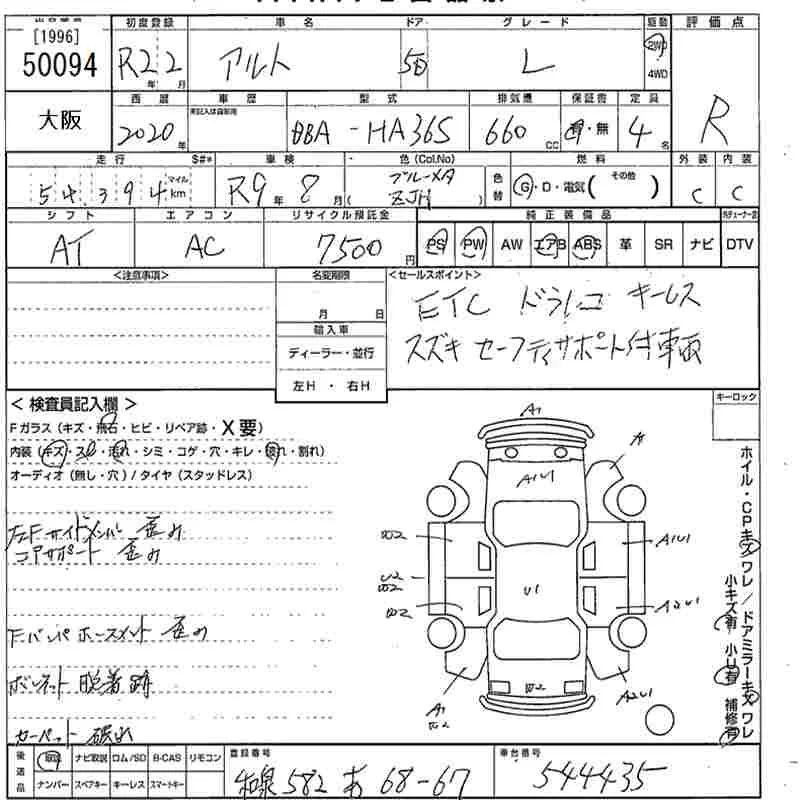 [1996]
50094
大阪
初度登録 車名 ドア グレード 駆動 評価点
R2 2 アルト 5D L 2WD R
年 月 4WD
西暦 車歴 型式 排気量 保証書 定員
未記入は自家用
2020年 DBA - HA36S 660 cc 有・無 4名
走行 S#* 車検 色(Col,No) 燃料 外装 内装
54,394 マイル km R9年8月 ( ブルーメタ ZJH ) 色替 G・D・電気( その他 ) C C
シフト エアコン リサイクル預託金 純正装備品
AT AC 7500円 PS PW AW エアB ABS 革 SR ナビ DTV
<注意事項> 名変期限 <セールスポイント>
月 日
ETC ドラレコ キーレス
輸入車
ディーラー・並行
スズキ セーフティサポート付車両
左H ・ 右H
< 検査員記入欄 > キーロック
Fガラス(キズ・飛石・ヒビ・リペア跡・X要)
内装(キズ・スレ・汚れ・シミ・コゲ・穴・キレ・破れ・割れ)
オーディオ(無し・穴)/タイヤ(スタッドレス)
左Fサイドメンバー 歪み
コアサポート 歪み
Fバンパホースメント 歪み
ボンネット 脱着跡
カーペット 破れ
A1
A
A1U1
A1U1
U2
U1
A2U1
A1
A2U1
ホイル・CPキズワレ/ドアミラーキズワレ
小キズ有 小U有 補修有
後送品 取説 ナビ取説 ロム/SD B-CAS リモコン 登録番号 車台番号
ナンバー スペアキー キーレス スマートキー 和泉 582 あ 68-67 544435